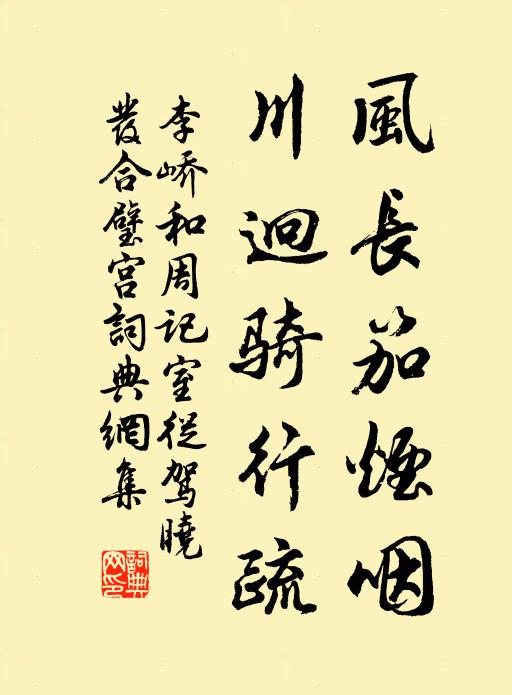 風長笳煙咽
川逈騎行疏
李嶠和周記室從駕曉
發合璧宮詞典網集
詞典
网印